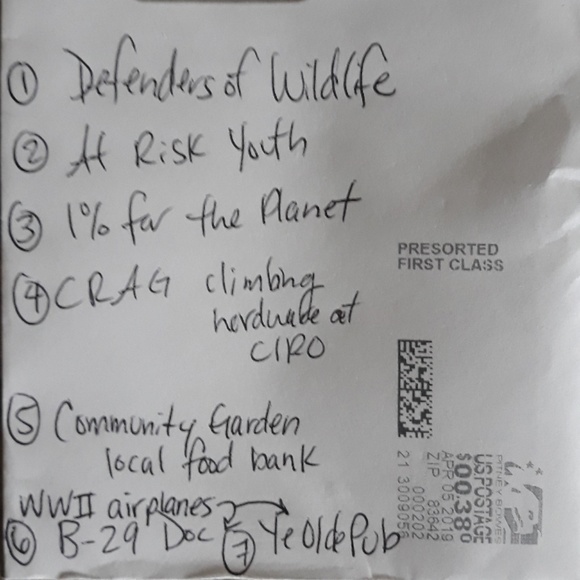 ① Defenders of Wildlife
② At Risk Youth
③ 1% for the Planet
PRESORTED
FIRST CLASS
④ CRAG climbing
hardware at
CIRO
⑤ Community Garden
local food bank
WWII airplanes
⑥ B-29 Doc ⑦ Ye Olde Pub
PITNEY BOWES
US POSTAGE
$00.38⁰
APR 05 2019
ZIP 83642
000202
21 300905